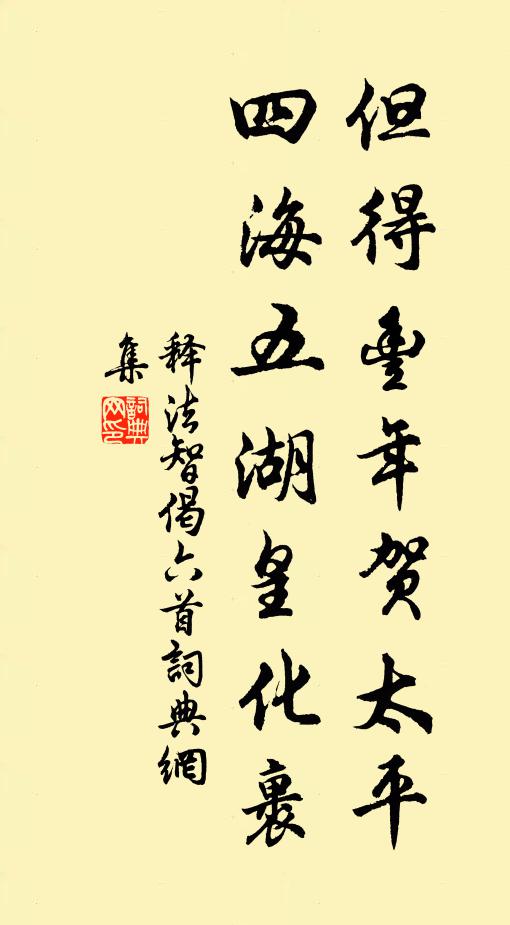 但得豐年贺太平
四海五湖皇化裏
释法智偈六首詞典網
集
詞典
网印